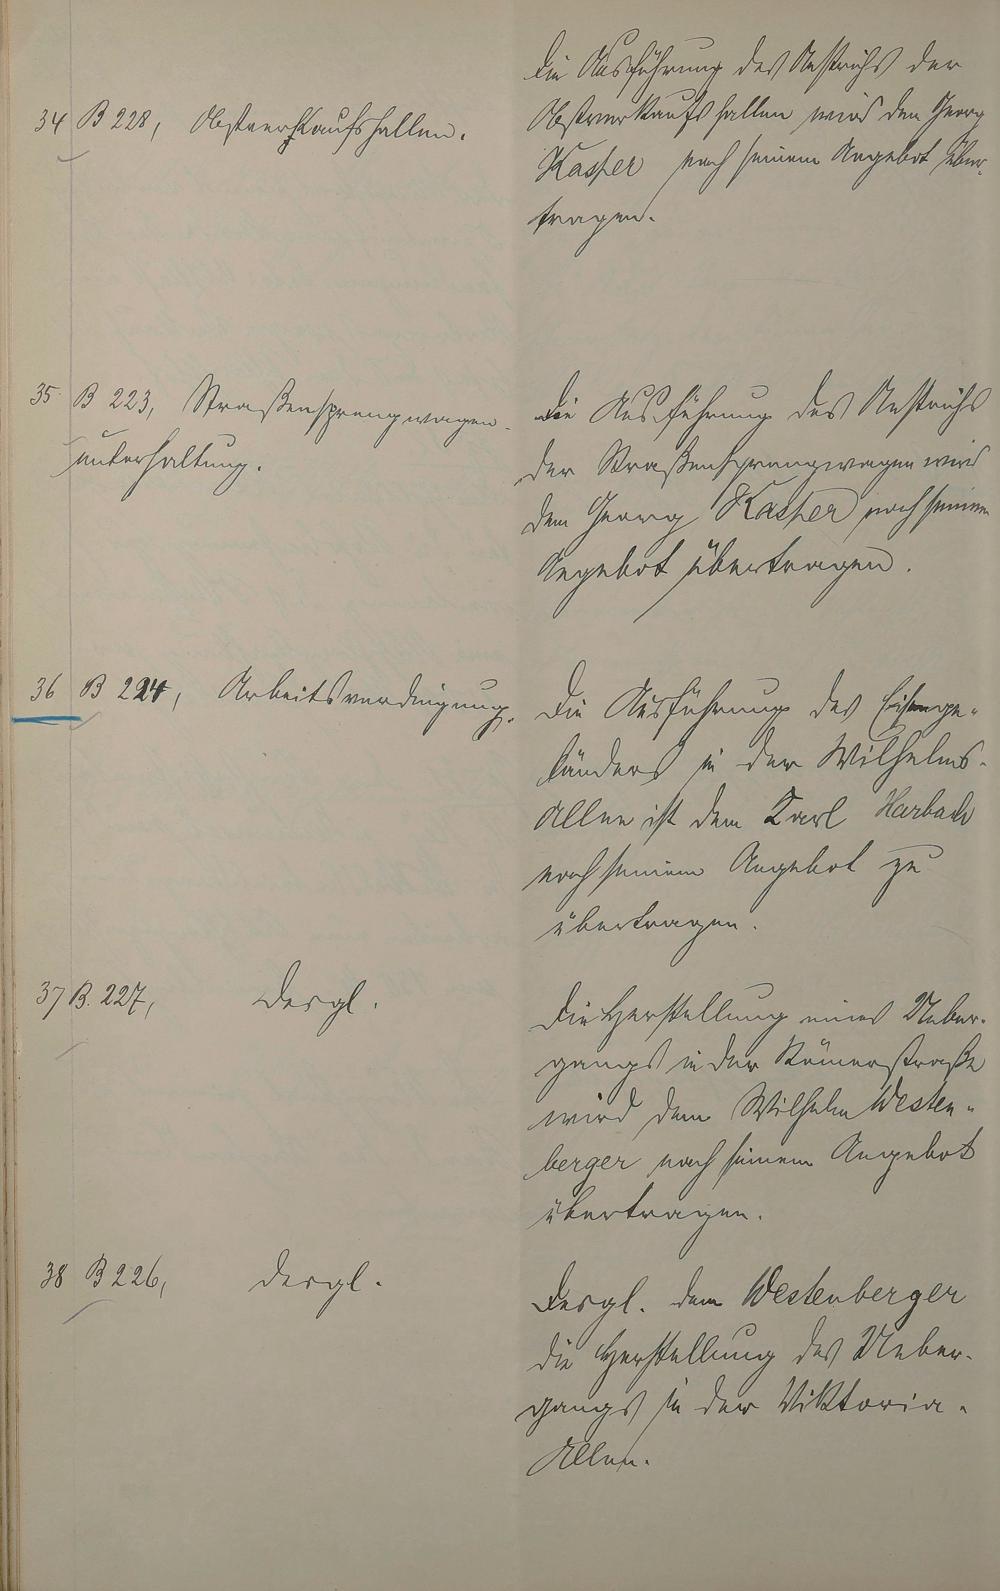 34 B 228, Obstverkaufshallen.
Die Ausführung des Anstrichs der
Obstverkaufshallen wird dem Georg
Kasper nach seinem Angebot über-
tragen.
35 B 223, Straßensprengwagen-
unterhaltung.
Die Ausführung des Anstrichs
der Straßensprengwagen wird
dem Georg Kasper nach seinem
Angebot übertragen.
36 B 224, Arbeitsverdingung.
Die Ausführung des Eisenge-
länders in der Wilhelms-
Allee ist dem Karl Harbach
nach seinem Angebot zu
übertragen.
37 B. 227, desgl.
Die Herstellung eines Ueber-
gangs in der Römerstraße
wird dem Wilhelm Westen-
berger nach seinem Angebot
übertragen.
38 B 226, desgl.
Desgl. dem Westenberger
die Herstellung des Ueber-
gangs in der Viktoria-
Allee.